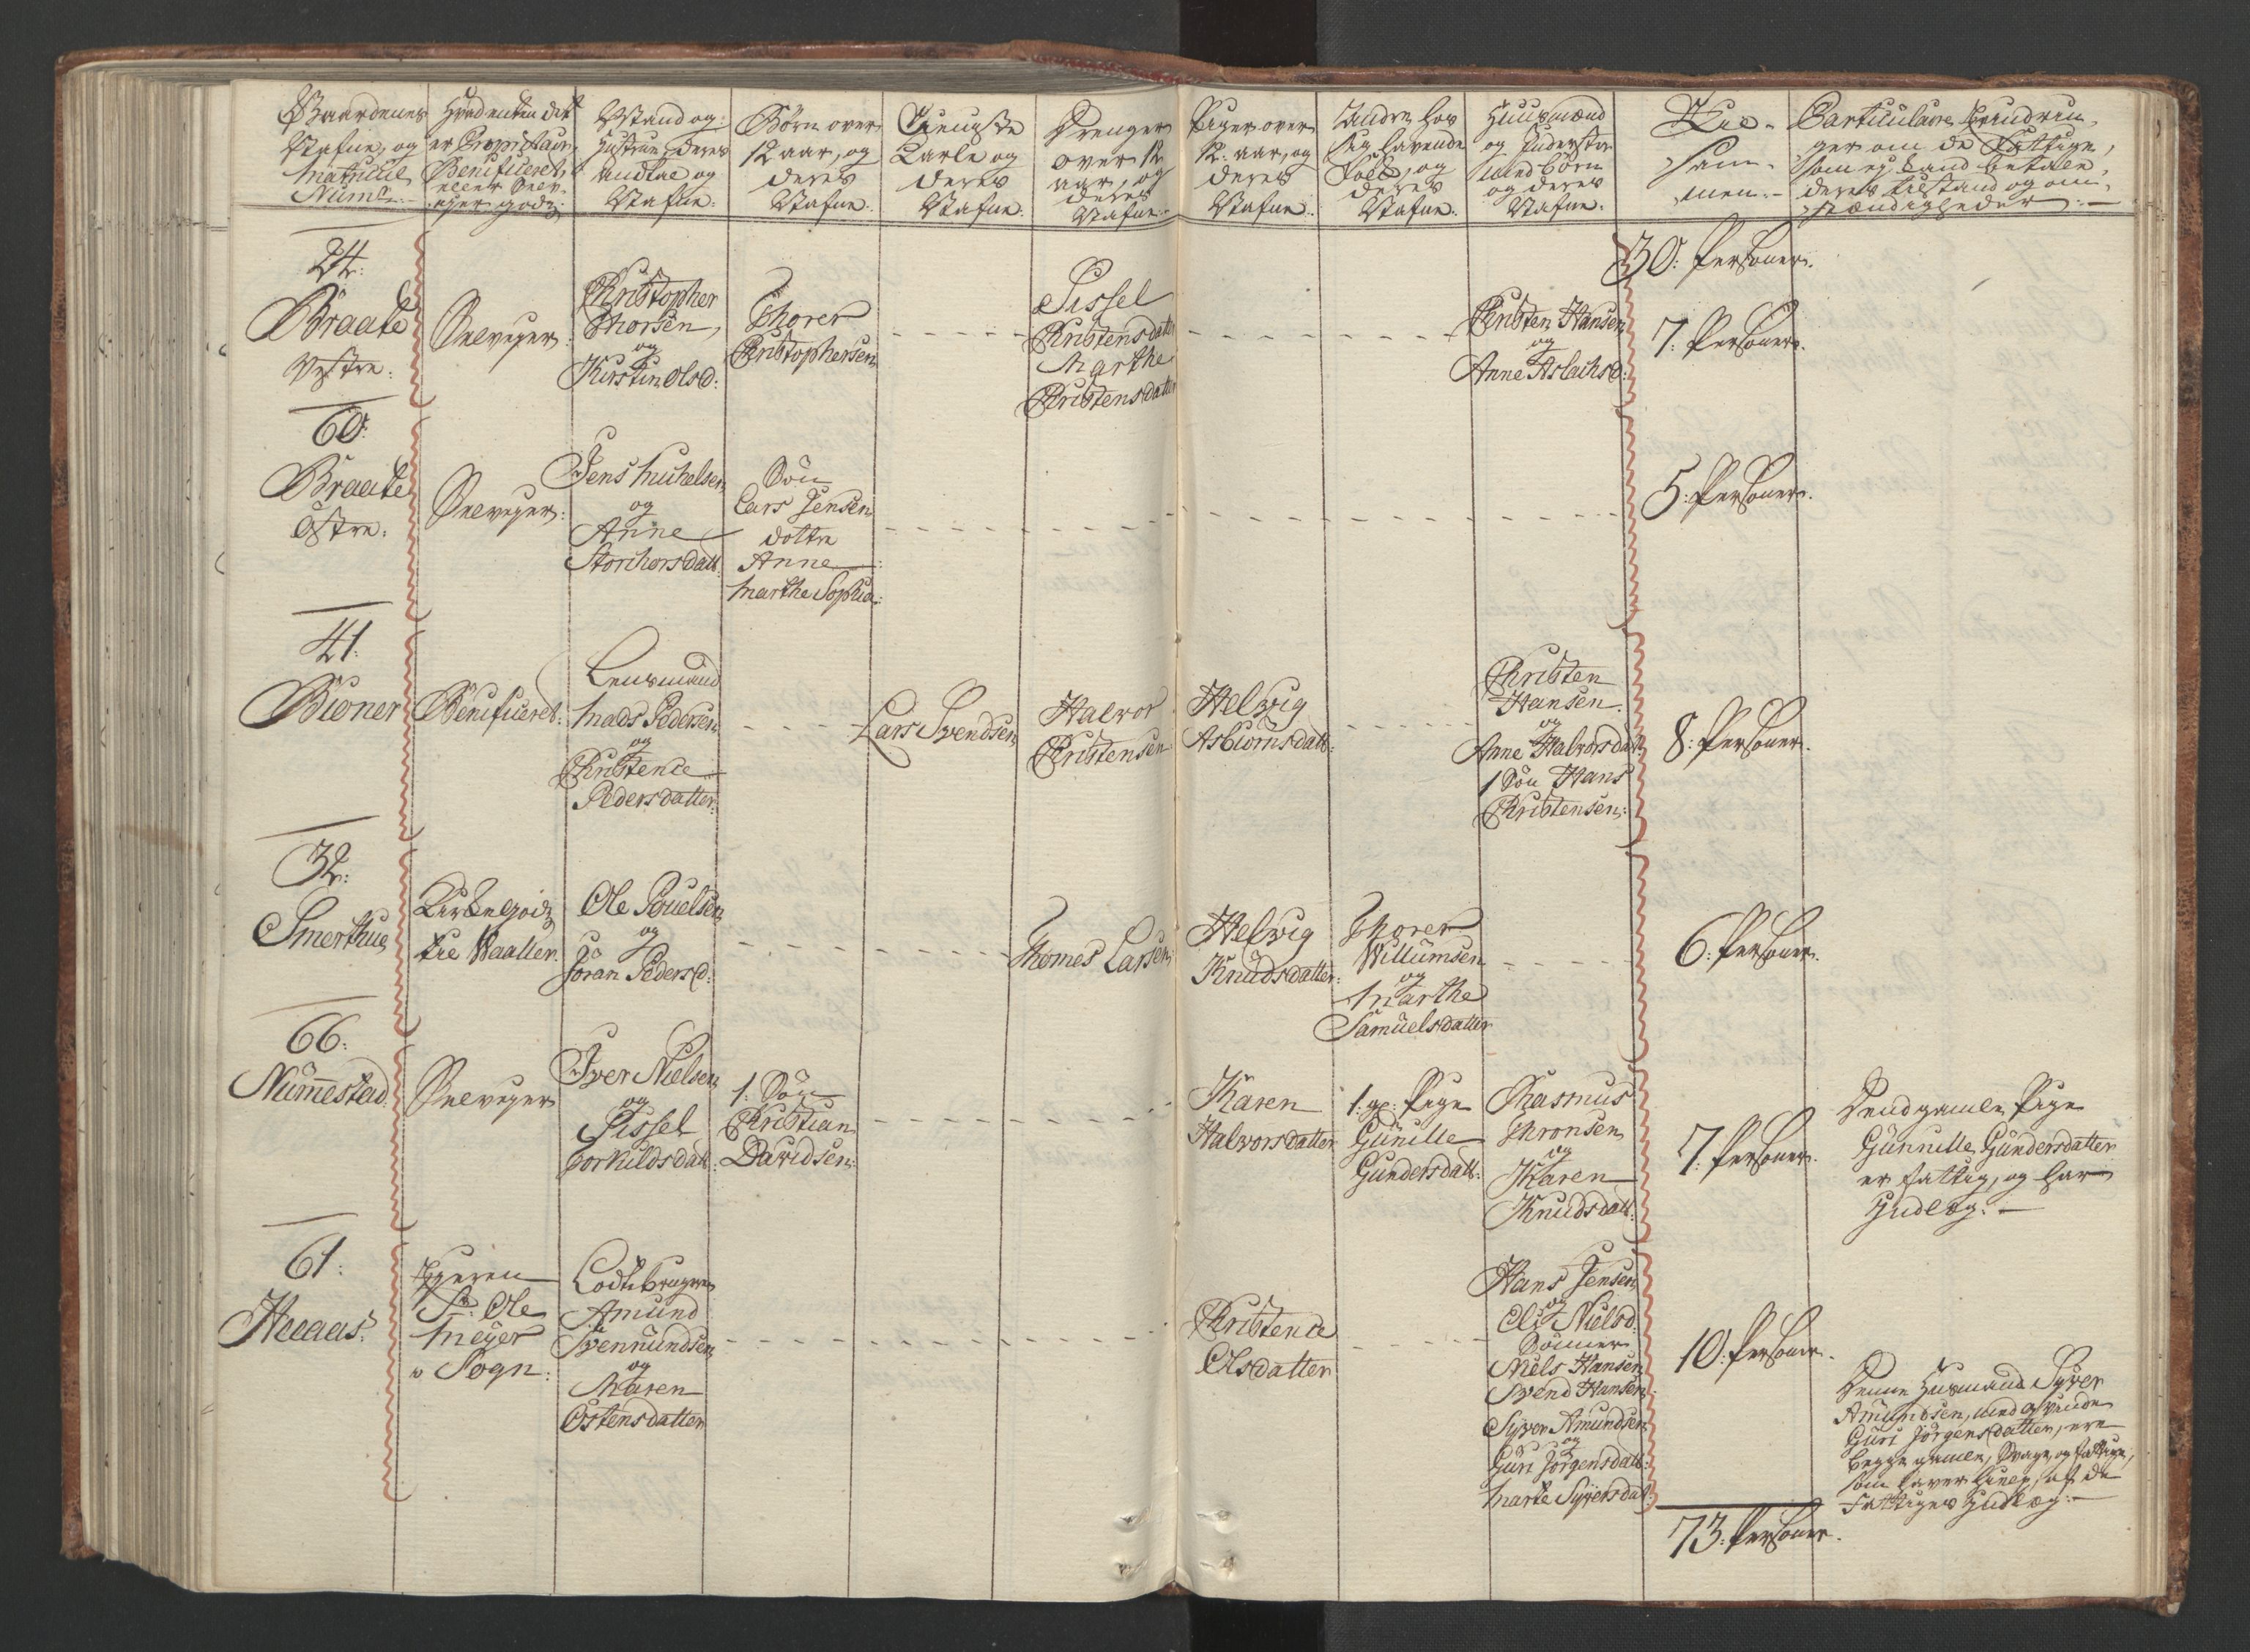 Gaardenes
Nafne, og
Matricul
Num:
Hvad enten det
er Proprietair
Benificeret,
eller Selv-
eyer godz:
Mand og
Hustrue deres
Andtal og
Nafne:
Børn over
12 aar, og
deres
Nafne:
Tieniste
Karle og
deres
Nafne:
Drenger
over 12
aar, og
deres
Nafne:
Piger over
12: aar, og
deres
Nafne:
Andre hos
sig havende
Folk, og
deres
Nafne:
Huusmænd
og Inderster
med Børn
og deres
Nafne:
Til-
sam-
men:-
Particulaire Erindrin-
ger om de Fattige,
som ej kand betale,
deres tilstand og om-
stændigheder:-
30: Personer.
24:
Braate
Vestre:
Selveyer:
Christopher
Thorsen,
og
Kirstin Olsd:
Thorer
Christophersen
Sissel
Christensdatter
Marthe
Christensdatter
Christen Hansen
og
Anne Aslachsd:
7: Personer.
60:
Braate
Østre:
Selveyer:
Jens Michelsen
og
Anne
Storchorsdatt:
Søn
Lars Jensen
dottre
Anne
Marthe Sophia:
5: Personer.
41:
Biøner
Benificeret:
Lensmand
Mads Pedersen
og
Christence
Pedersdatter:
Lars Svendsen
Halvor
Christensen:
Helvig
Asbiørnsdatt:
Christen
Hansen.
og
Anne Halvorsdatt
1 Søn Hans
Christensen:
8: Personer.
32:
Smerthue
Kirke godz
til Waaller.
Ole Pouelsen
og
Jøran Pedersd:
Thomes Larsen:
Helvig
Knudsdatter:
Thorer
Willumsen
og
Marthe
Samuelsdatter
6: Personer.
66:
Nummestad:
Selveyer
Iver Nielsen
og
Sissel
Torkildsdatt:
1: Søn
Christian
Davidsen:
Karen
Halvorsdatter
1: gl: Pige
Gunille
Gundersdatt:
Rasmus
Thronsen
og
Karen
Knudsdatt:
7: Personer.
Dend gamle Pige
Gunnille Gundersdatter
er fattig, og har
Indlæg:-
61:
Aaas:
Eyeren
Sr: Ole
Meyer
i Sogn:
Lodtbrugeren
Amund
Svennundsen
og
Maren
Østensdatter
Christence
Olsdatter
Hans Jensen
og
Eli Nielsd:
Sønner
Niels Hansen
Svend Hansen
Syver Amundsen
og
Guri Jørgensdatt:
Marte Syversdat:
10: Personer.
Denne Husmand Syver
Amundsen, med qvinde
Guri Jørgensdatter, ere
begge gamle, Svage og fattige,
som haver hielp af de
Fattiges Indlæg:-
73: Personer.